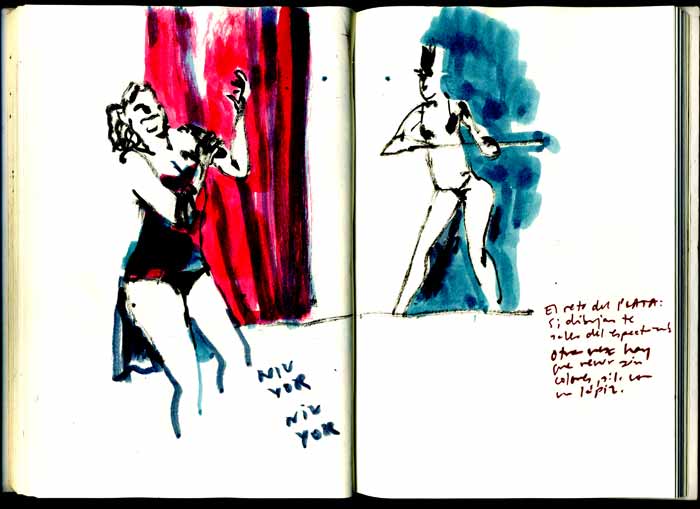 NIU
YOR
NIU
YOR
El reto del PLATA:
Si dibujas te
sales del espectáculo
otra vez hay
que venir sin
colores, sólo con
un lápiz.